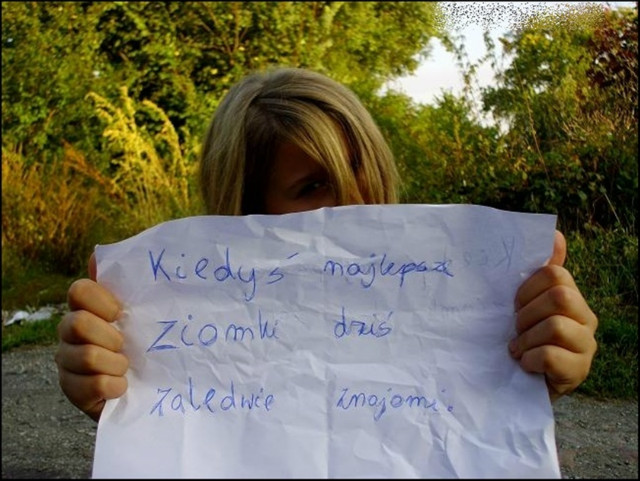 Kiedyś najlepsze
ziomki dziś
zaledwie znajomi.